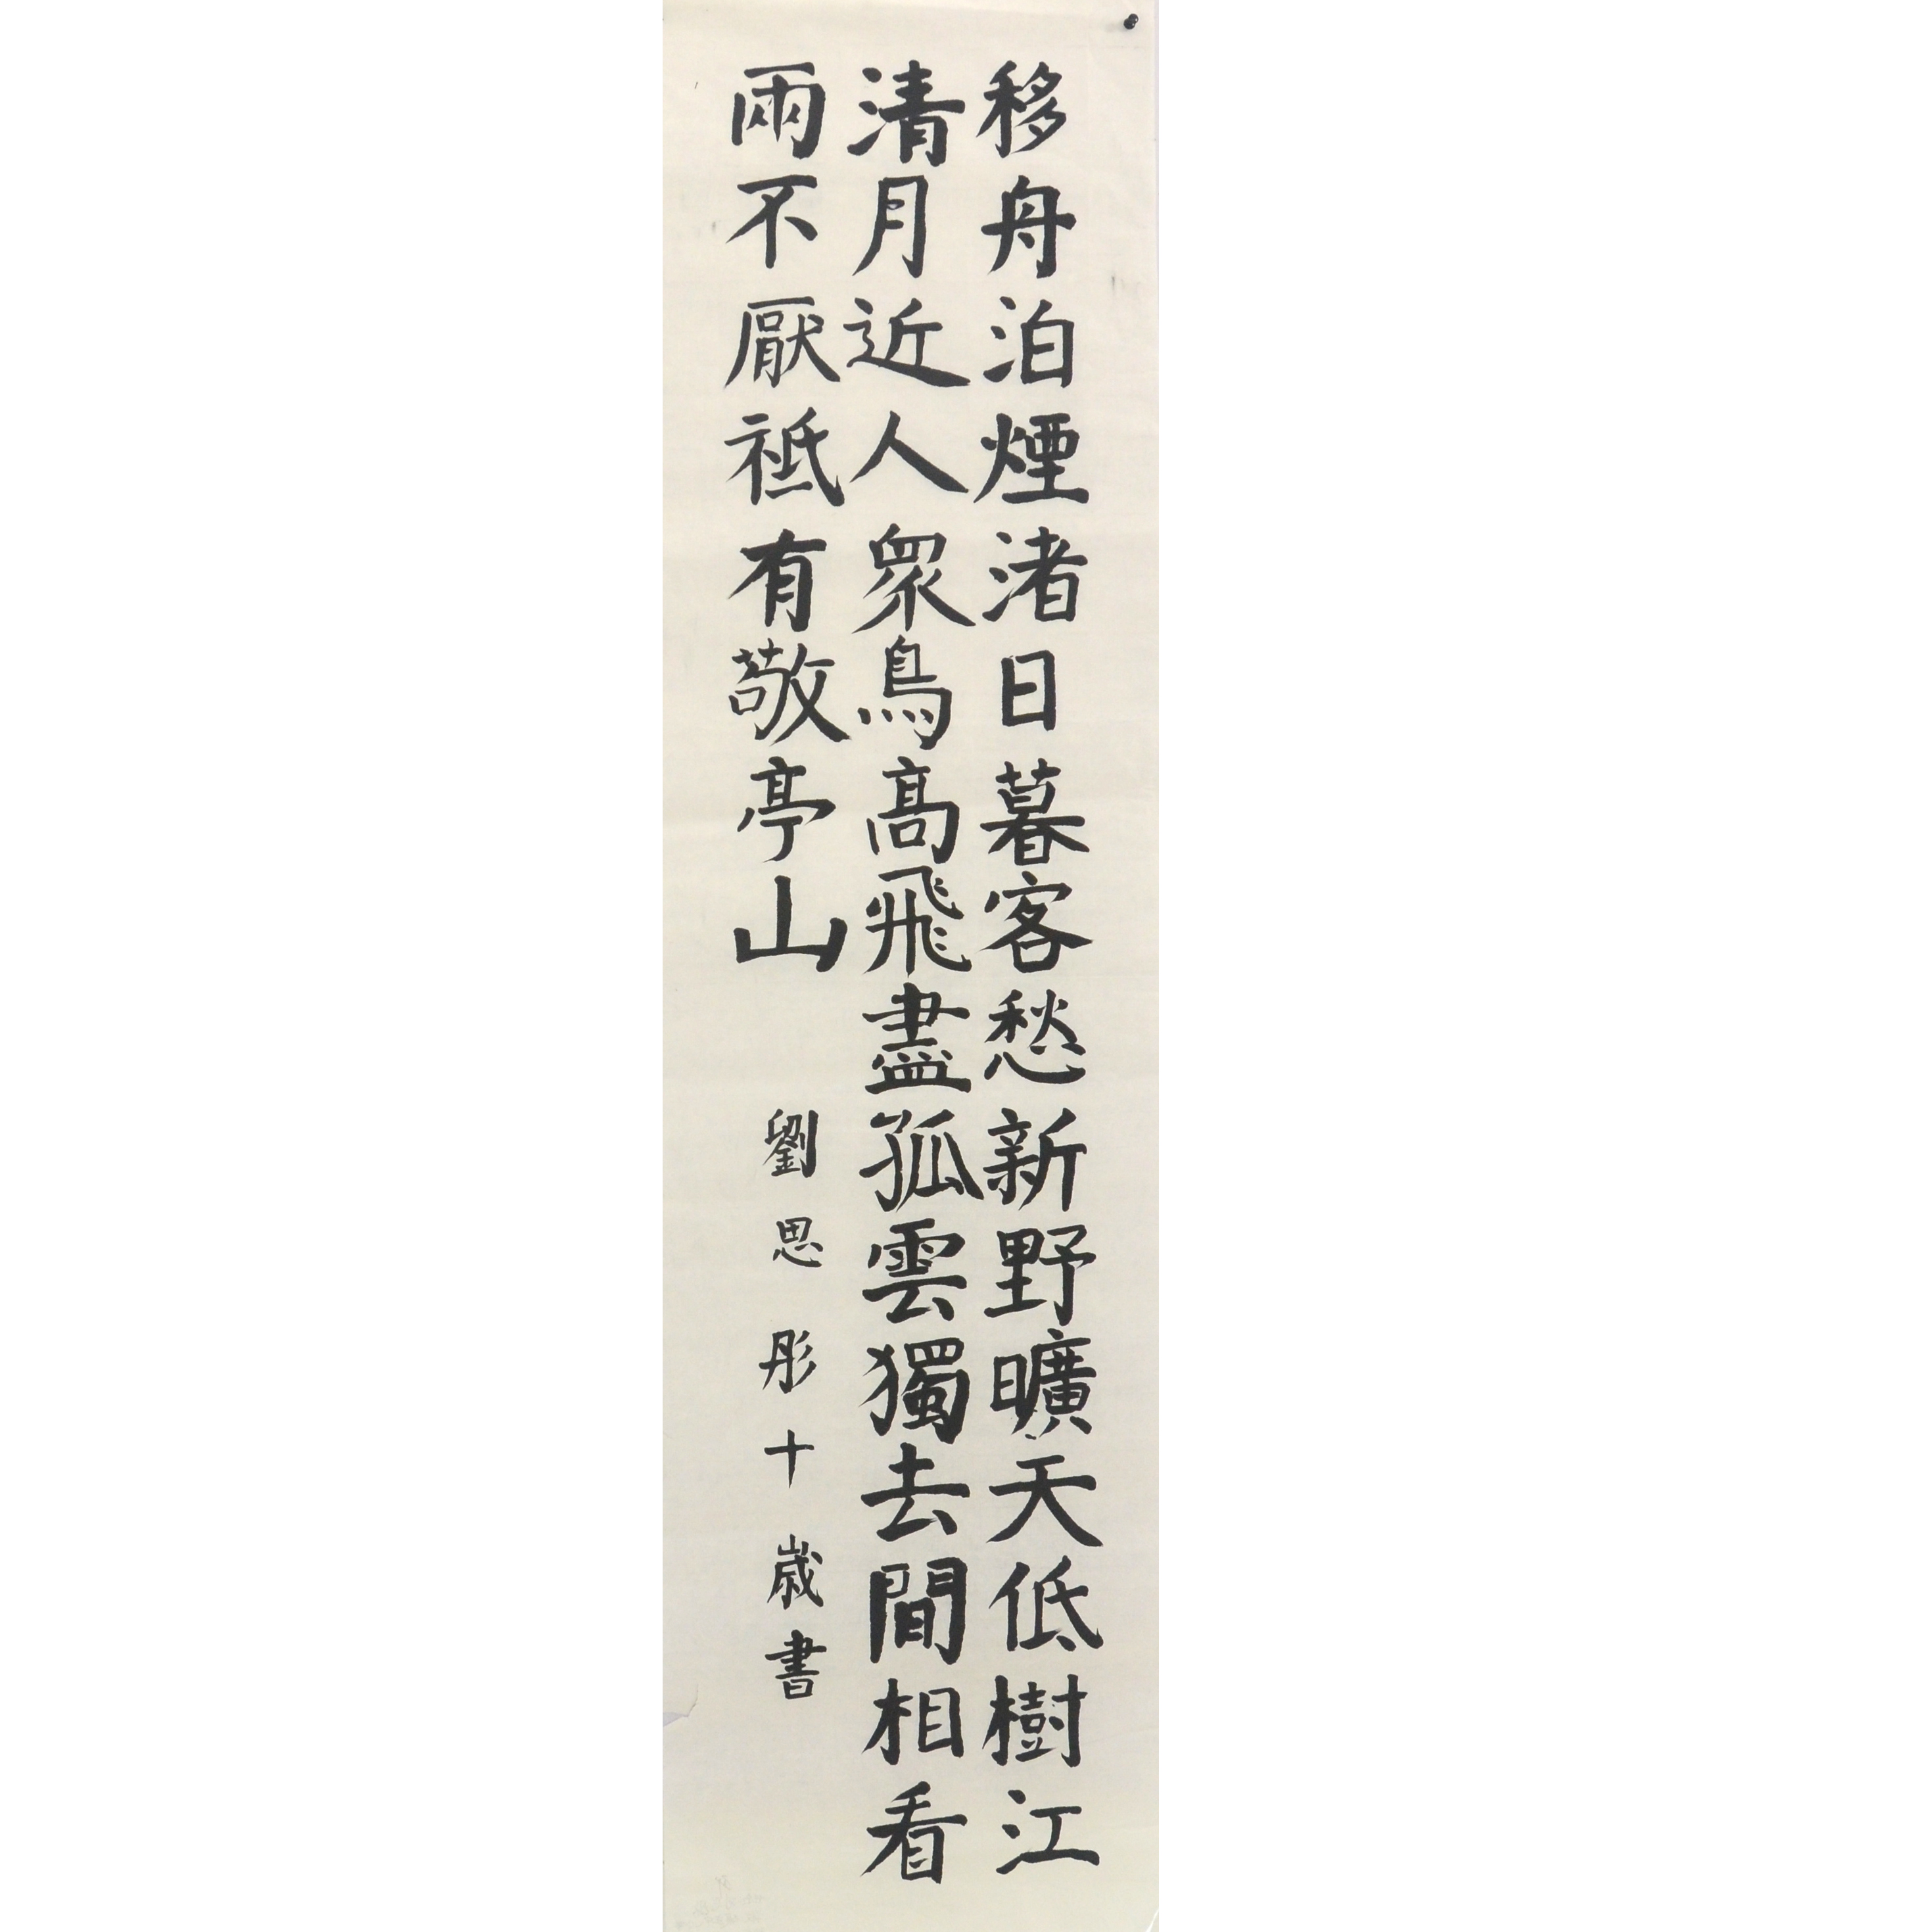 移舟泊煙渚日暮客愁新野曠天低樹江
清月近人眾鳥高飛盡孤雲獨去閒相看
兩不厭祗有敬亭山
劉思彤十歲書